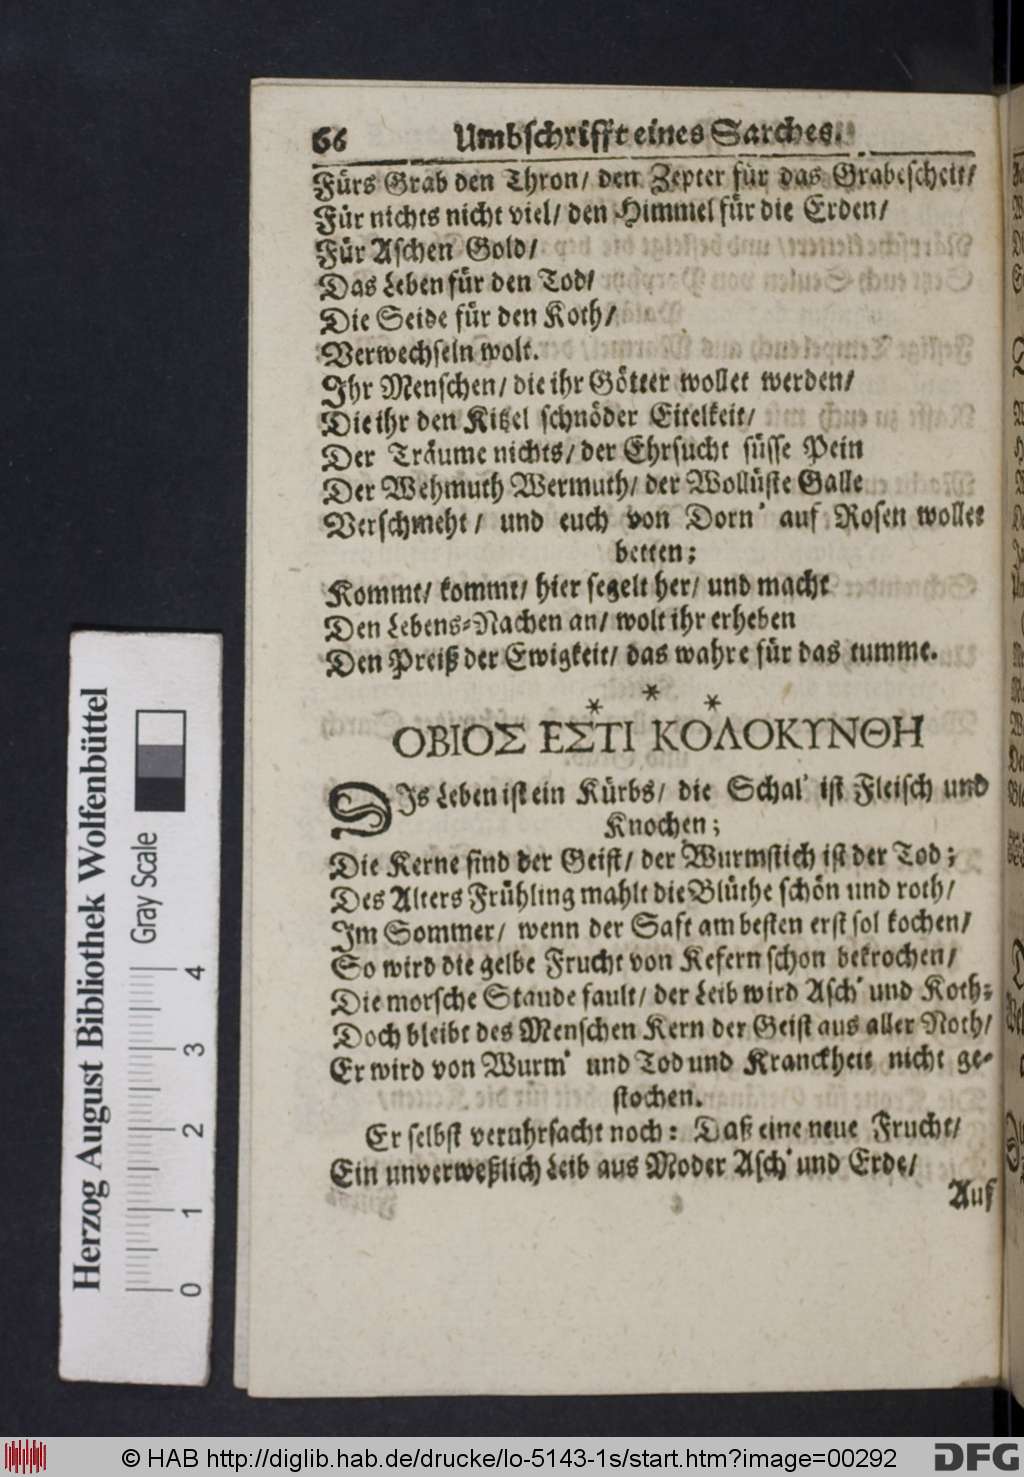 66 Umbschrifft eines Sarches.
Fürs Grab den Thron/ den Zepter für das Grabescheit/
Für nichts nicht viel/ den Himmel für die Erden/
Für Aschen Gold/
Das Leben für den Tod/
Die Seide für den Koth/
Verwechseln wolt.
Ihr Menschen/ die ihr Götter wollet werden/
Die ihr den Kitzel schnöder Eitelkeit/
Der Träume nichts/ der Ehrsucht süsse Pein
Der Wehmuth Wermuth/ der Wollüste Galle
Verschmeht/ und euch von Dorn' auf Rosen wollet
betten;
Kommt/ kommt/ hier segelt her/ und macht
Den Lebens-Nachen an/ wolt ihr erheben
Den Preiß der Ewigkeit/ das wahre für das tumme.
* * *
ΟΒΙΟΣ ΕΣΤΙ ΚΟΛΟΚΥΝΘΗ
DIs Leben ist ein Kürbs/ die Schal' ist Fleisch und
Knochen;
Die Kerne sind der Geist/ der Wurmstich ist der Tod;
Des Alters Frühling mahlt die Blüthe schön und roth/
Im Sommer/ wenn der Saft am besten erst sol kochen/
So wird die gelbe Frucht von Kefern schon bekrochen/
Die morsche Staude fault/ der Leib wird Asch' und Koth:
Doch bleibt des Menschen Kern der Geist aus aller Noth/
Er wird von Wurm' und Tod und Kranckheit nicht ge-
stochen.
Er selbst veruhrsacht noch: Daß eine neue Frucht/
Ein unverweßlich Leib aus Moder Asch' und Erde/
Auf
Herzog August Bibliothek Wolfenbüttel
Gray Scale
0 1 2 3 4
© HAB http://diglib.hab.de/drucke/lo-5143-1s/start.htm?image=00292
DFG